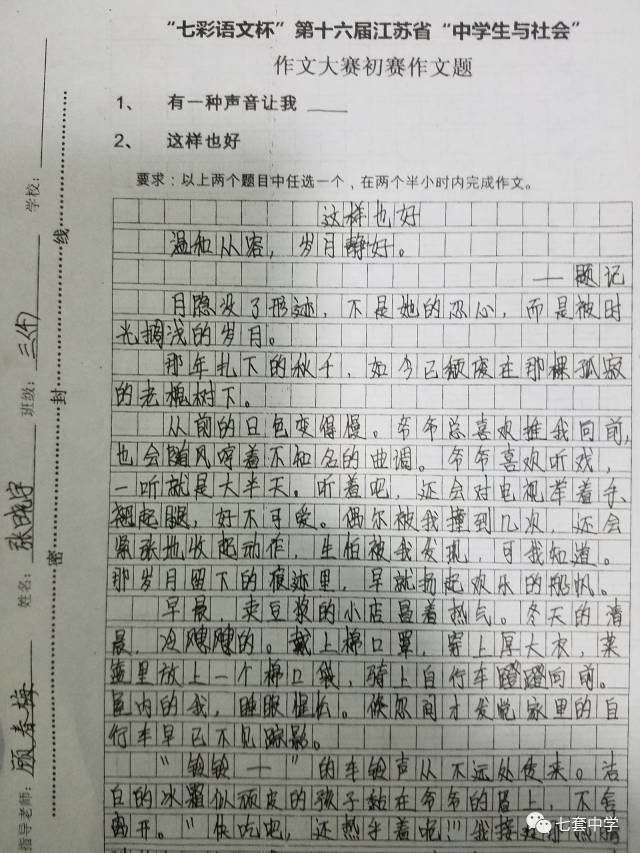 “七彩语文杯”第十六届江苏省“中学生与社会”
作文大赛初赛作文题
1、 有一种声音让我
2、 这样也好
要求：以上两个题目中任选一个，在两个半小时内完成作文。
这样也好
温和从容，岁月静好。
——题记
月隐没了形迹，不是她的忍心，而是被时
光搁浅的岁月。
那年扎下的秋千，如今已颓废在那棵孤寂
的老槐树下。
从前的日色变得慢。爷爷总喜欢推我向前，
也会随风哼着不知名的曲调。爷爷喜欢听戏，
一听就是大半天。听着吧，还会对电视举着手、
翘起腿，好不可爱。偶尔被我撞到几次，还会
紧张地收起动作，生怕被我发现，可我知道。
那岁月留下的痕迹里，早就扬起欢乐的船帆。
早晨，卖豆浆的小店冒着热气。冬天的清
晨，冷飕飕的。戴上棉口罩，穿上厚大衣，菜
篮里放上一个棉口袋，骑上自行车蹬蹬向前。
屋内的我，睡眼惺忪。倏忽间才发觉家里的自
行车早已不见踪影。
“铃铃——”的车铃声从不远处传来。洁
白的冰霜似顽皮的孩子黏在爷爷的眉上，不舍
离开。“快吃吧，还热乎着呢！”我接过
学校：
班级：
姓名：张晓宇
指导老师：顾春梅
密 封 线
七套中学